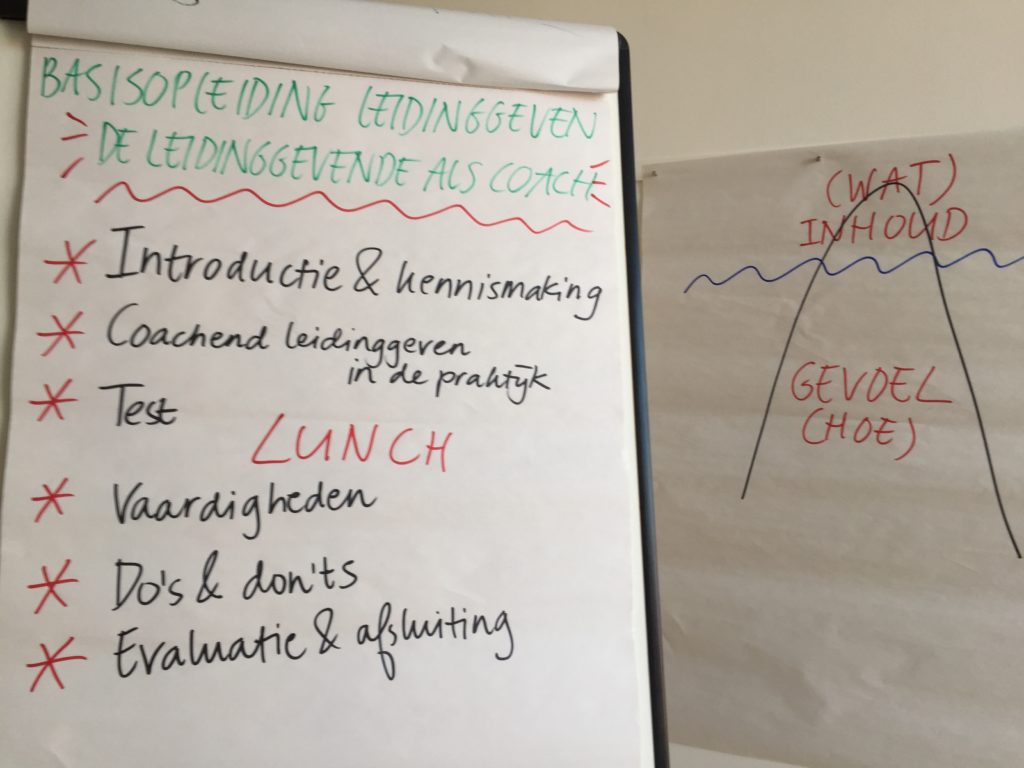 BASISOPLEIDING LEIDINGGEVEN
DE LEIDINGGEVENDE ALS COACH
* Introductie & kennismaking
* Coachend leidinggeven
in de praktijk
* Test
LUNCH
* Vaardigheden
* Do's & don'ts
* Evaluatie & afsluiting
(WAT)
INHOUD
GEVOEL
(HOE)